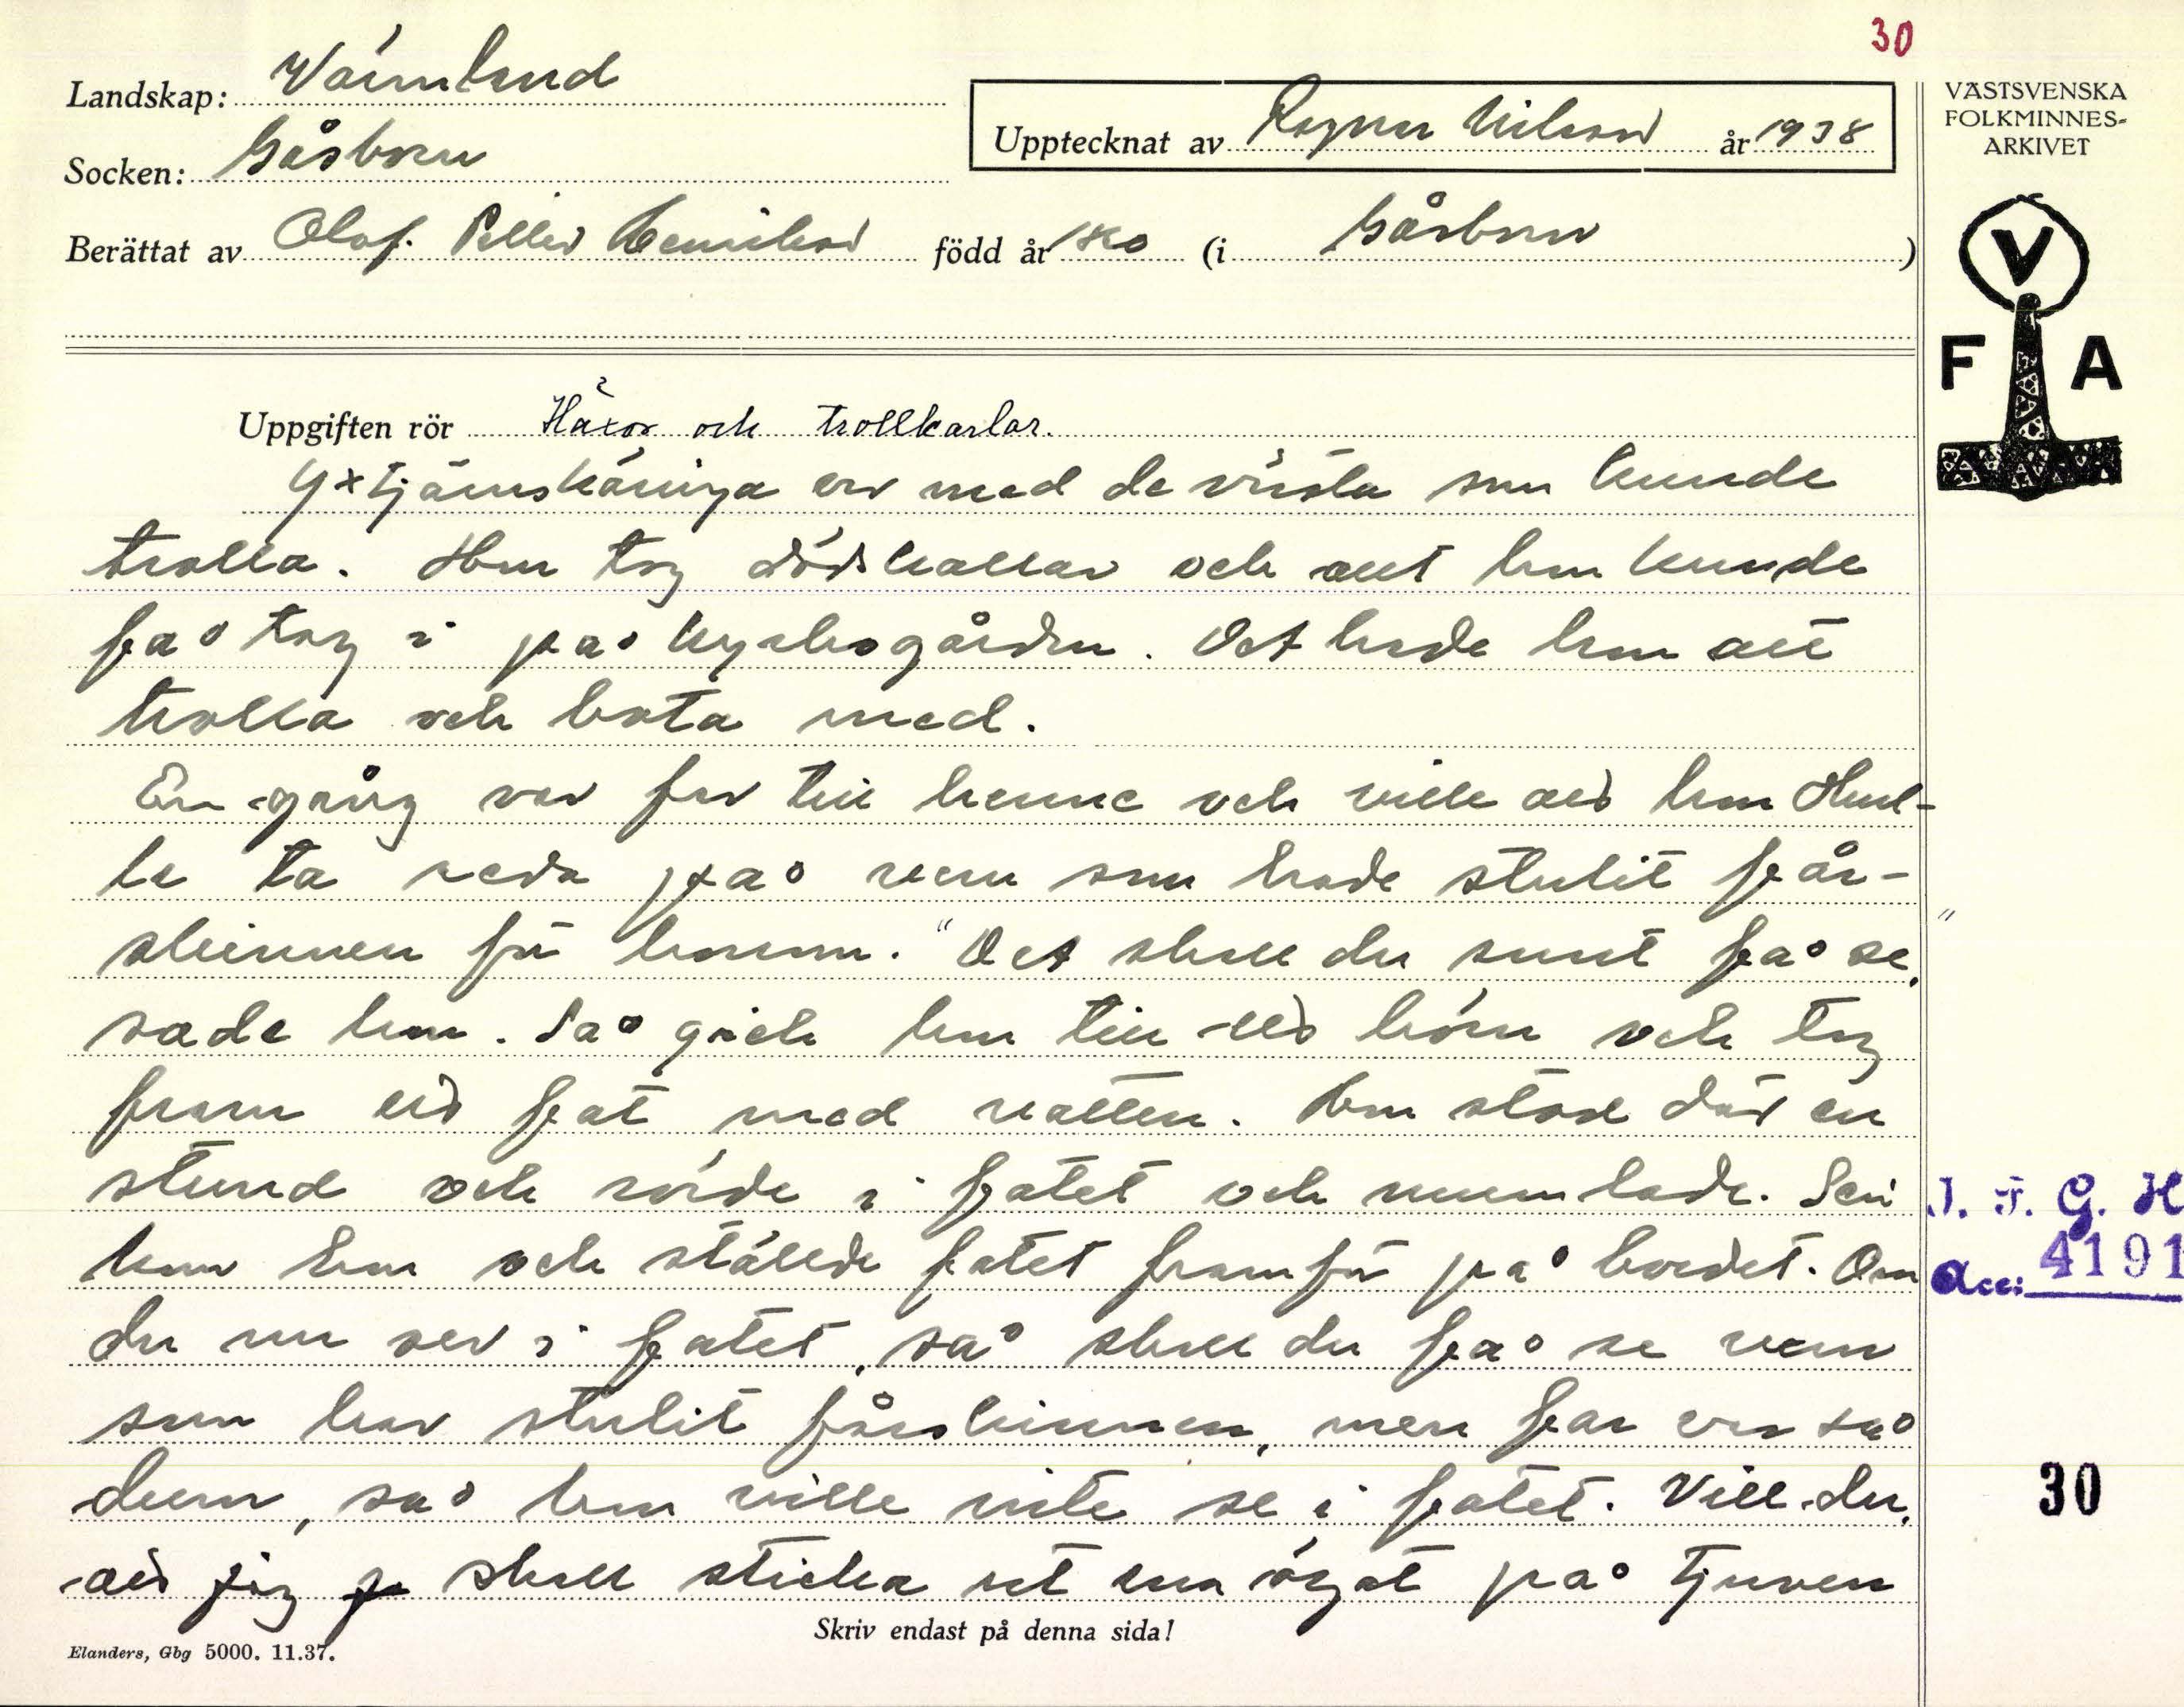 30
Landskap: Värmland
VÄSTSVENSKA
FOLKMINNES-
ARKIVET
Upptecknat av Ragnar Nilsson år 1938
Socken: Gåsborn
Berättat av Olof Petter Henrikson född år 1860 (i Gåsborn)
V
F A
Uppgiften rör Häxor och trollkarlar.
Yxtjärnskäringa var med de värsta som kunde
trolla. Hon tog dödskallar och allt hon kunde
få tag i på kyrkogården. Det hade hon att
trolla och bota med.
En gång var far till henne och ville att hon skul-
le ta reda på vem som hade stulit får-
skinnen för honom. "Det skall du snart få se,"
sade hon. Så gick hon till ett hörn och tog
fram ett fat med vatten. Hon stod där en
stund och rörde i fatet och mumlade. Sen
kom hon och ställde fatet framför på bordet. Om
du nu ser i fatet, så skall du få se vem
som har stulit fårskinnen, men far var så
dum, så han ville inte se i fatet. Vill du,
att jag skall sticka ut ena ögat på tjuven
J. F. G. H
Acc: 4191
30
Skriv endast på denna sida!
Elanders, Gbg 5000. 11.37.